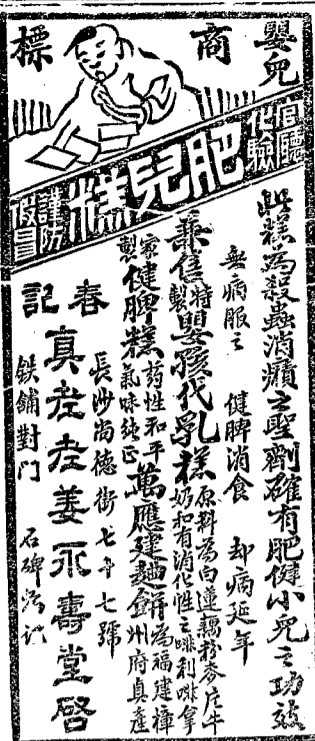 嬰兒商標
官廳化驗
肥兒糕
謹防假冒
此糕為殺蟲消癪之聖劑確有肥健小兒之功效
無病服之 健脾消食 却病延年
兼售特製嬰孩代乳糕 原料為白蓮藕粉麥片牛奶和有消化性之啡利啡拿
家製健脾糕 藥性和平氣味純正 萬應建麯餅 為福建漳州府真產
長沙尚德街七十七號
春記 真老老姜永壽堂啓
鉄鋪對門 石碑為記